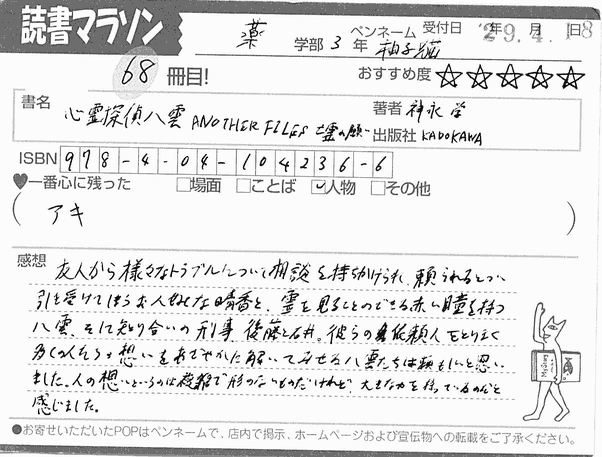 読書マラソン
薬 学部 3 年 ペンネーム 柚子猫 受付日 '29.4.18
68 冊目! おすすめ度 ☆☆☆☆☆
書名 心霊探偵八雲 ANOTHER FILES 亡霊の願い
著者 神永 学
出版社 KADOKAWA
ISBN 978-4-04-104236-6
♥一番心に残った □場面 □ことば ☑人物 □その他
( アキ )
感想
友人から様々なトラブルについて相談を持ちかけられ、頼られるとつい
引き受けてしまうお人好しな晴香と、霊を見ることのできる赤い瞳を持つ
八雲、そして知り合いの刑事 後藤と石井。彼らの依頼人をとりまく
多くの人たちの想いをあざやかに解いてみせる八雲たちは頼もしいと思い
ました。人の想いというのは複雑で形のないものだけれど、大きな力を持っているのだと
感じました。
●お寄せいただいたPOPはペンネームで、店内で掲示、ホームページおよび宣伝物への転載をご了承ください。